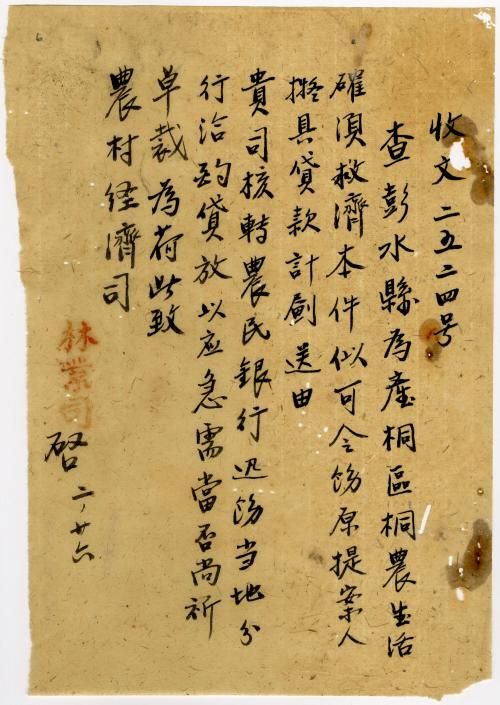 收文二五二四号
查彭水縣為産桐區桐農生活
確須救濟本件似可令飭原提案人
擬具貸款計劃送由
貴司核轉農民銀行迅飭当地分
行洽酌貸放以应急需當否尚祈
卓裁為荷此致
農村经濟司
林業司
啓 二、廿六